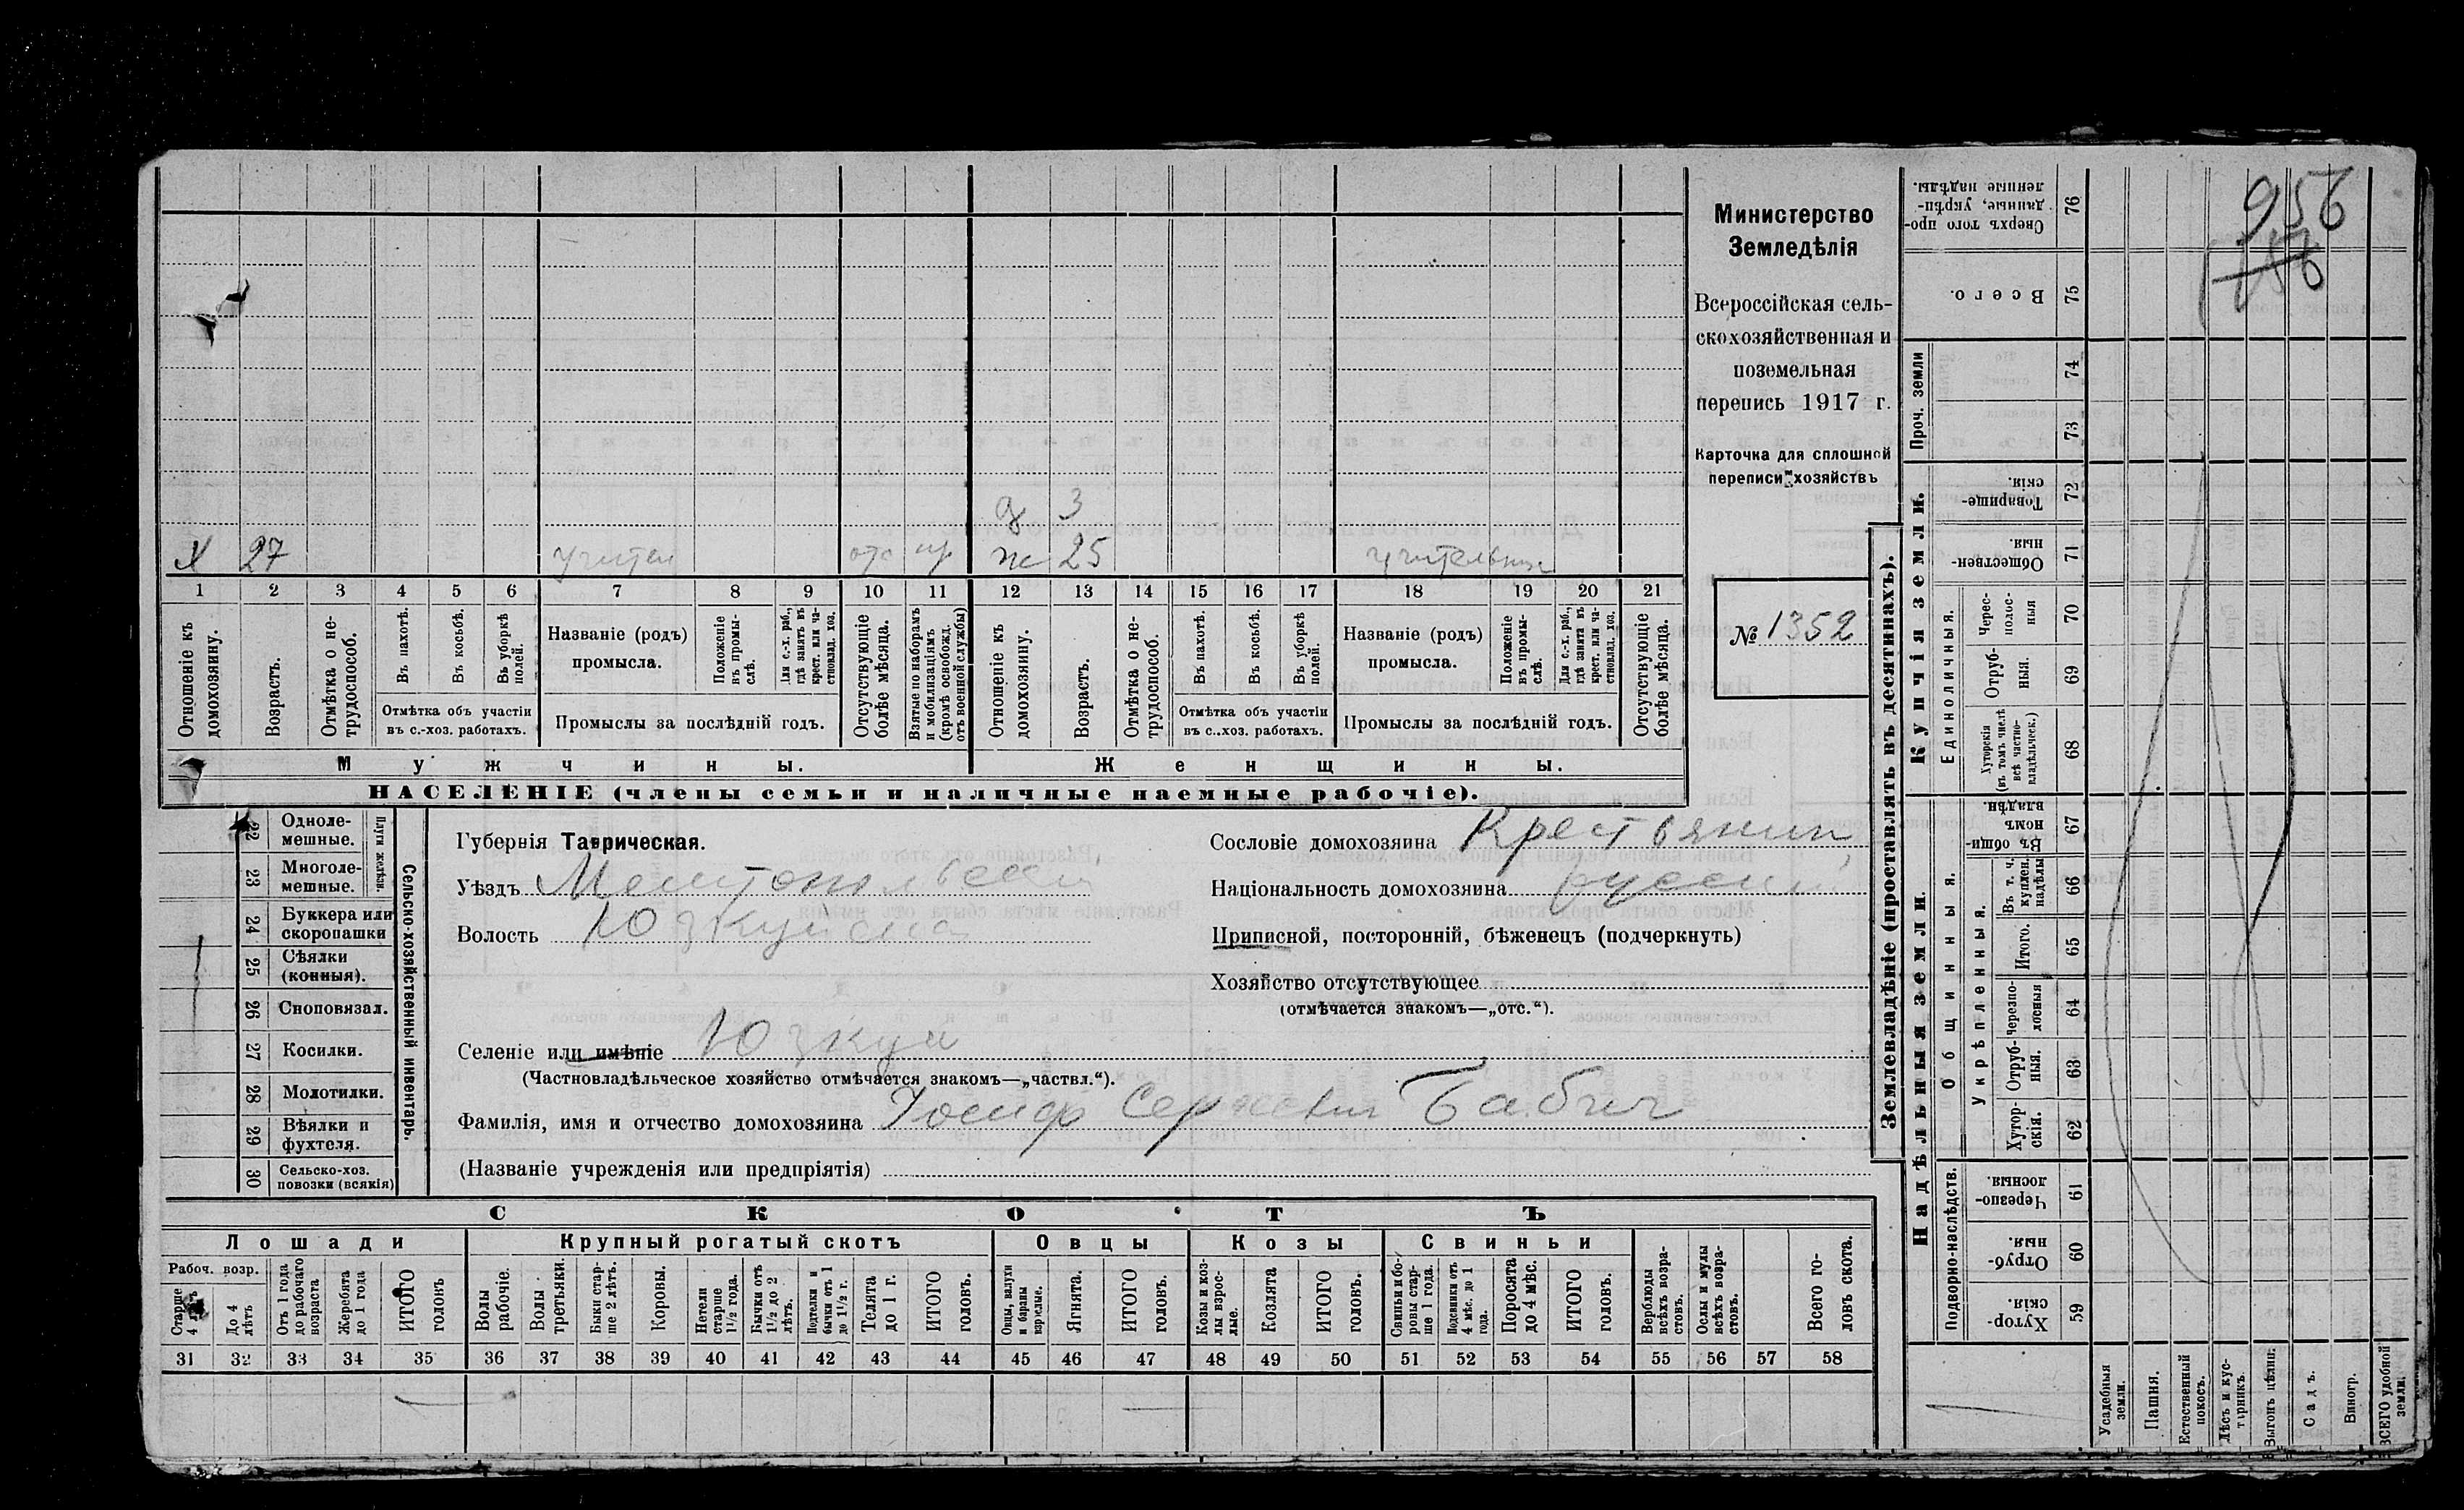 Министерство
Земледѣлія
Всероссійская сель-
скохозяйственная и
поземельная
перепись 1917 г.
Карточка для сплошной
переписи хозяйствъ
№ 1352
956
д 3
х 27 учител отс пр ж 25 учительниц
1 2 3 4 5 6 7 8 9 10 11 12 13 14 15 16 17 18 19 20 21
Отношеніе къ домохозяину.
Возрастъ.
Отмѣтка о не-трудоспособ.
Въ пахотѣ.
Въ косьбѣ.
Въ уборкѣ полей.
Отмѣтка объ участіи
въ с.-хоз. работахъ.
Названіе (родъ)
промысла.
Положеніе въ промы-слѣ.
Для с.-х. раб., гдѣ занятъ въ крест. или ча-стновлад. хоз.
Промыслы за послѣдній годъ.
Отсутствующіе болѣе мѣсяца.
Взятые по наборамъ и мобилизаціямъ (кромѣ освобожд. отъ военной службы)
Отношеніе къ домохозяину.
Возрастъ.
Отмѣтка о не-трудоспособ.
Въ пахотѣ.
Въ косьбѣ.
Въ уборкѣ полей.
Отмѣтка объ участіи
въ с..хоз. работахъ.
Названіе (родъ)
промысла.
Положеніе въ промы-слѣ.
Для с.-х. раб., гдѣ занята въ крест. или ча-стновлад. хоз.
Промыслы за послѣдній годъ.
Отсутствующіе болѣе мѣсяца.
Мужчины.
Женщины.
НАСЕЛЕНІЕ (члены семьи и наличные наемные рабочіе).
22 Одноле-мешные.
23 Многоле-мешные.
Плуги желѣзн.
24 Буккера или скоропашки
25 Сѣялки (конныя).
26 Сноповязал.
27 Косилки.
28 Молотилки.
29 Вѣялки и фухтеля.
30 Сельско-хоз. повозки (всякія)
Сельско-хозяйственный инвентарь.
Губернія Таврическая.
Уѣздъ Мелитопольский
Волость Юзкуйская
Селеніе или имѣніе Юзкуи
(Частновладѣльческое хозяйство отмѣчается знакомъ—„частвл.“).
Фамилія, имя и отчество домохозяина Иосиф Сергеевич Бабич
(Названіе учрежденія или предпріятія)
Сословіе домохозяина Крестьянин,
Національность домохозяина русский
Приписной, посторонній, бѣженецъ (подчеркнуть)
Хозяйство отсутствующее
(отмѣчается знакомъ—„отс.“).
СКОТЪ
Лошади
Крупный рогатый скотъ
Овцы
Козы
Свиньи
Рабоч. возр.
Старше 4 лѣтъ
До 4 лѣтъ
Отъ 1 года до рабочаго возраста
Жеребята до 1 года
ИТОГО головъ
Волы рабочіе.
Волы третьяки.
Быки стар-ше 2 лѣтъ.
Коровы.
Нетели старше 1½ года.
Бычки отъ 1½ до 2 лѣтъ.
Подтелки и бычки отъ 1 до 1½ г.
Телята до 1 г.
ИТОГО головъ.
Овцы, валухи и бараны взрослые.
Ягнята.
ИТОГО головъ.
Козы и коз-лы взрос-лые.
Козлята
ИТОГО головъ.
Свиньи и бо-ровы стар-ше 1 года.
Подсвинки отъ 4 мѣс. до 1 года.
Поросята до 4 мѣс.
ИТОГО головъ.
Верблюды всѣхъ возра-стовъ.
Ослы и мулы всѣхъ возра-стовъ.
Всего го-ловъ скота.
31 32 33 34 35 36 37 38 39 40 41 42 43 44 45 46 47 48 49 50 51 52 53 54 55 56 57 58
Землевладѣніе (проставлять въ десятинахъ).
Надѣльныя земли.
Купчія земли.
Проч. земли
Подворно-наслѣдств.
Общинныя.
Укрѣпленныя.
Единоличныя.
Сверхъ того про-данные, укрѣп-ленные надѣлы. 76
Всего. 75
74
73
Товарище-скія. 72
Обществен-ныя. 71
Черес-полос-ныя 70
Отруб-ныя. 69
Хуторскія (въ томъ числѣ всѣ частно-владѣльческ.) 68
Въ общи-номъ владѣн. 67
Въ т. ч. куплен. надѣлы 66
Итого. 65
Черезпо-лосныя 64
Отруб-ныя. 63
Хутор-скія. 62
Черезпо-лосныя. 61
Отруб-ныя. 60
Хутор-скія. 59
Усадебныя земли.
Пашня.
Естественный покосъ.
Лѣсъ и кус-тарникъ.
Выгонъ цѣлин.
Садъ.
Виногр.
ВСЕГО удобной земли.